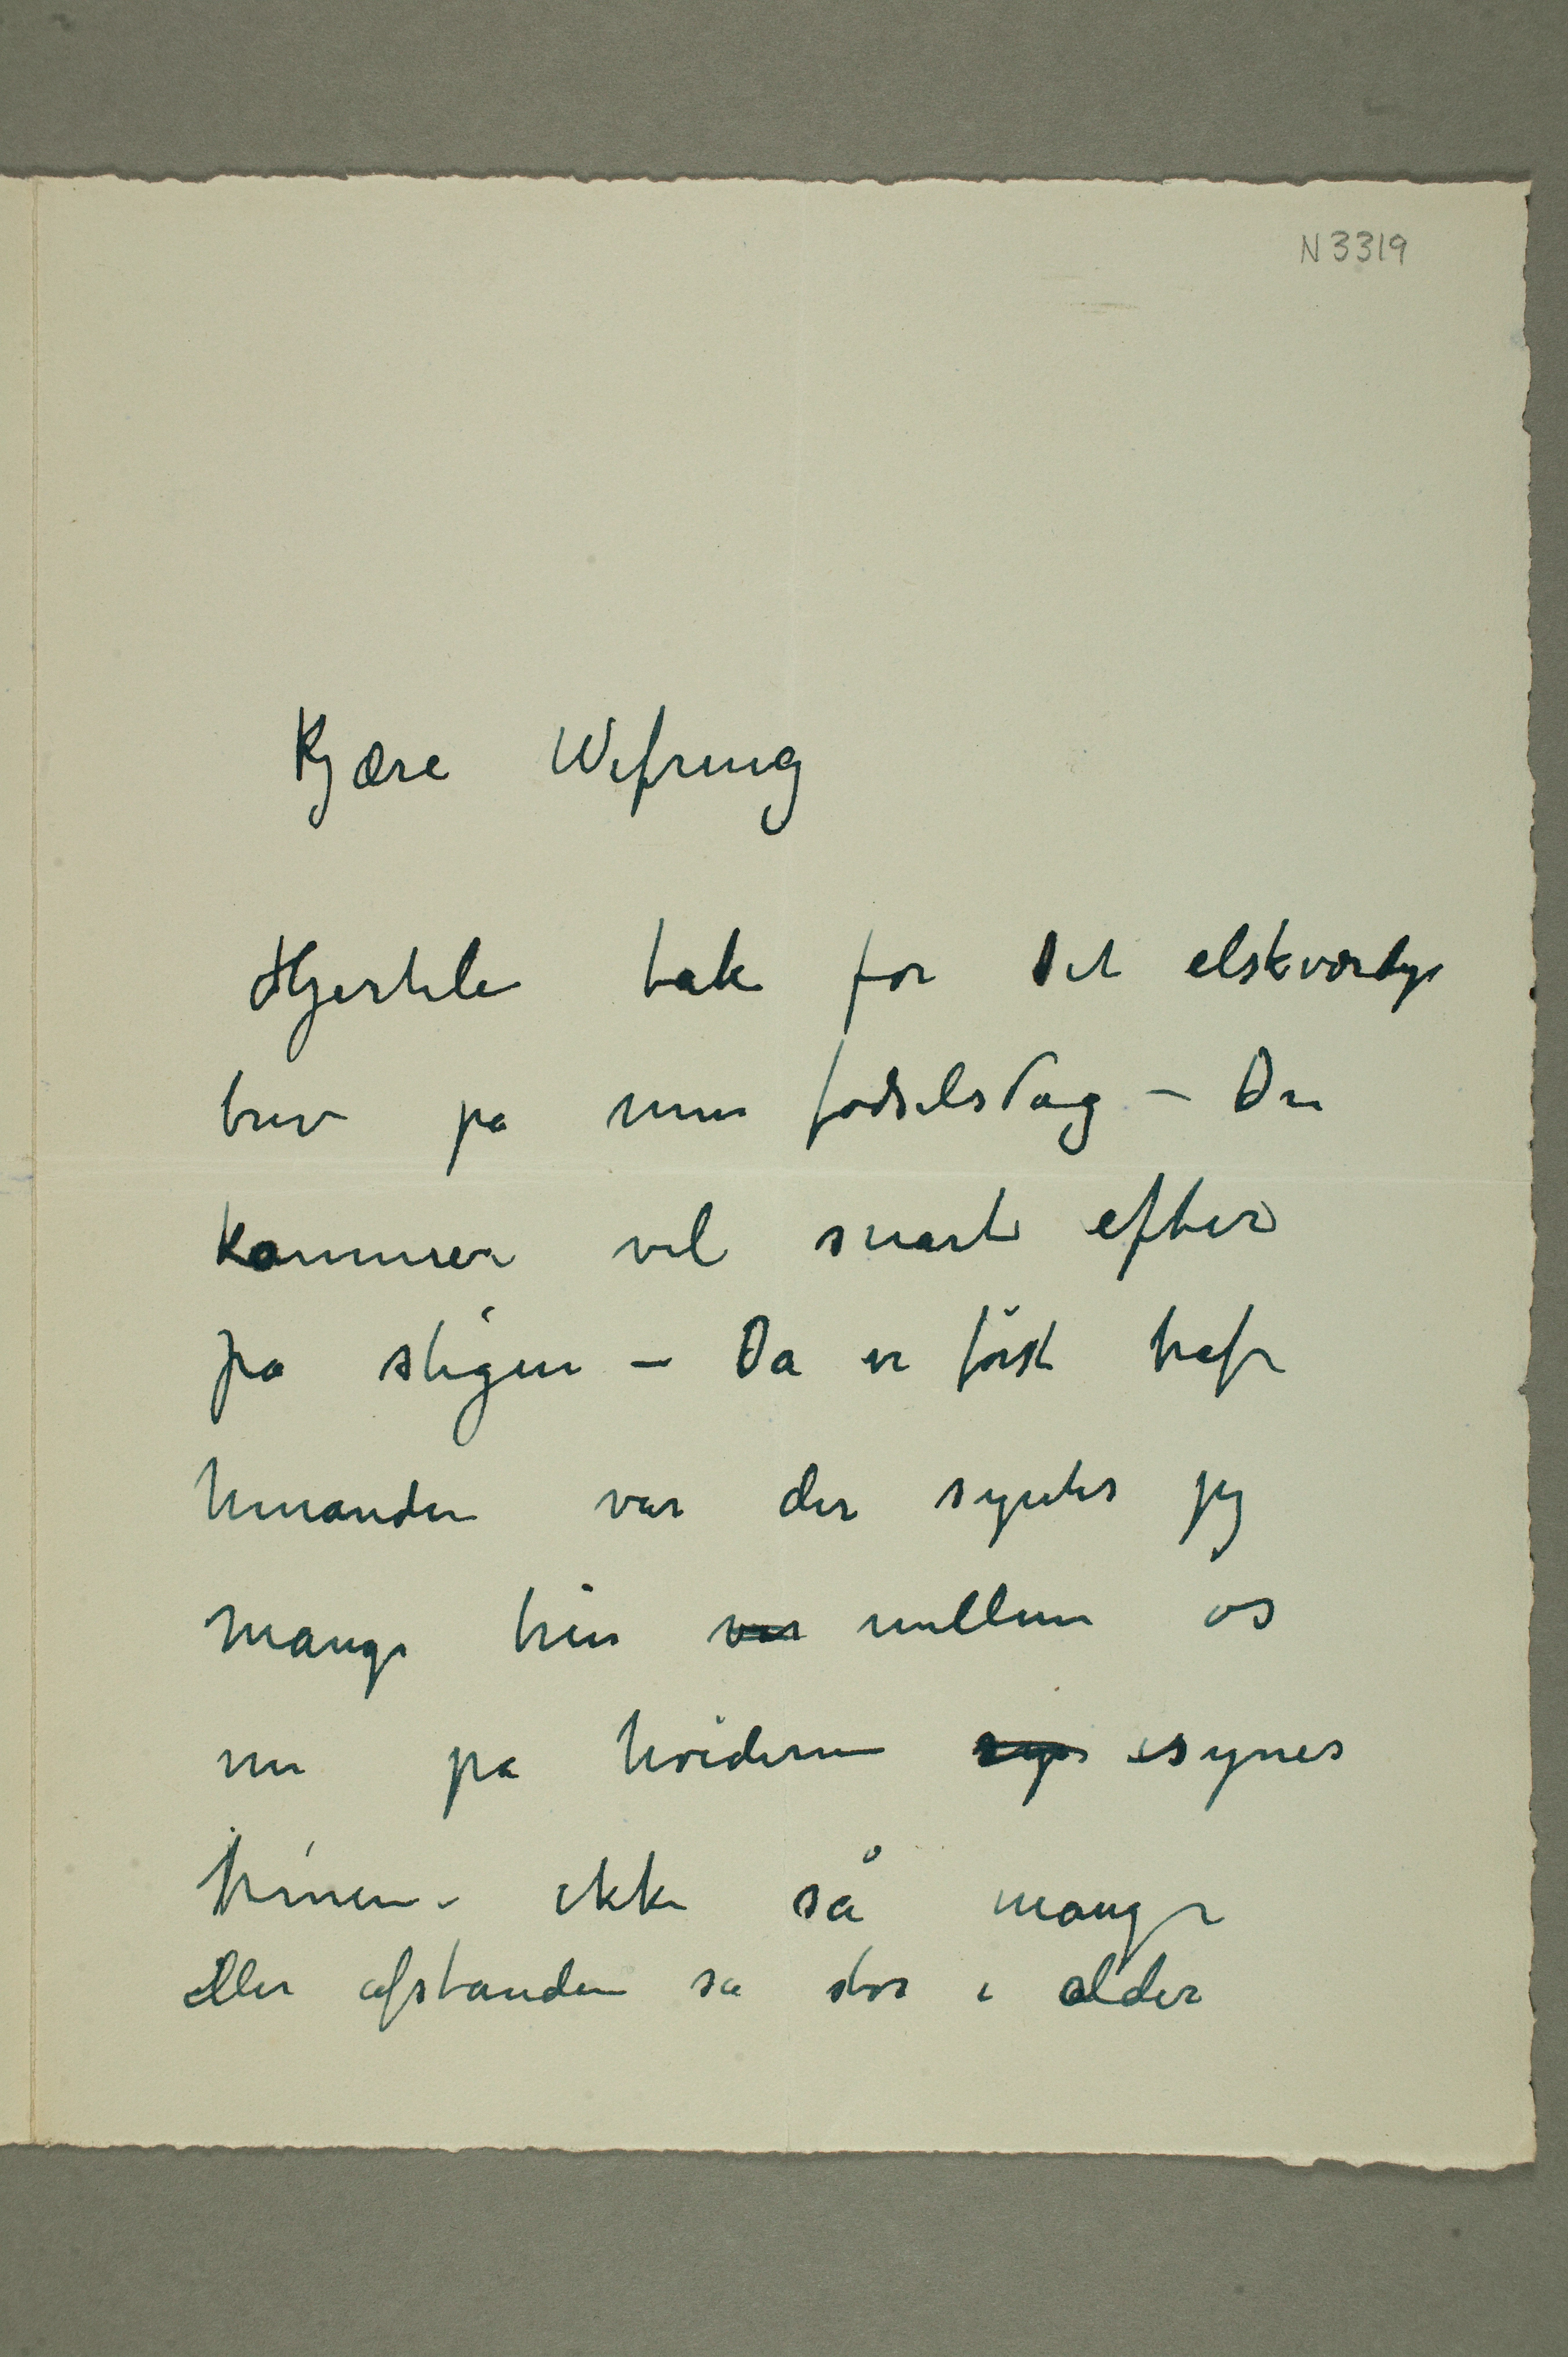 N 3319
Kjære Wefring
Hjertelig tak for Det elskværdige
brev på min fødselsdag – De
kommer vel snart efter
på stigen – Da vi först traf
hinanden var der syntes jeg
mange trin var mellem os
nu på höiderne syn isynes
trinene ikke så mange
eller afstanden så stor i alder